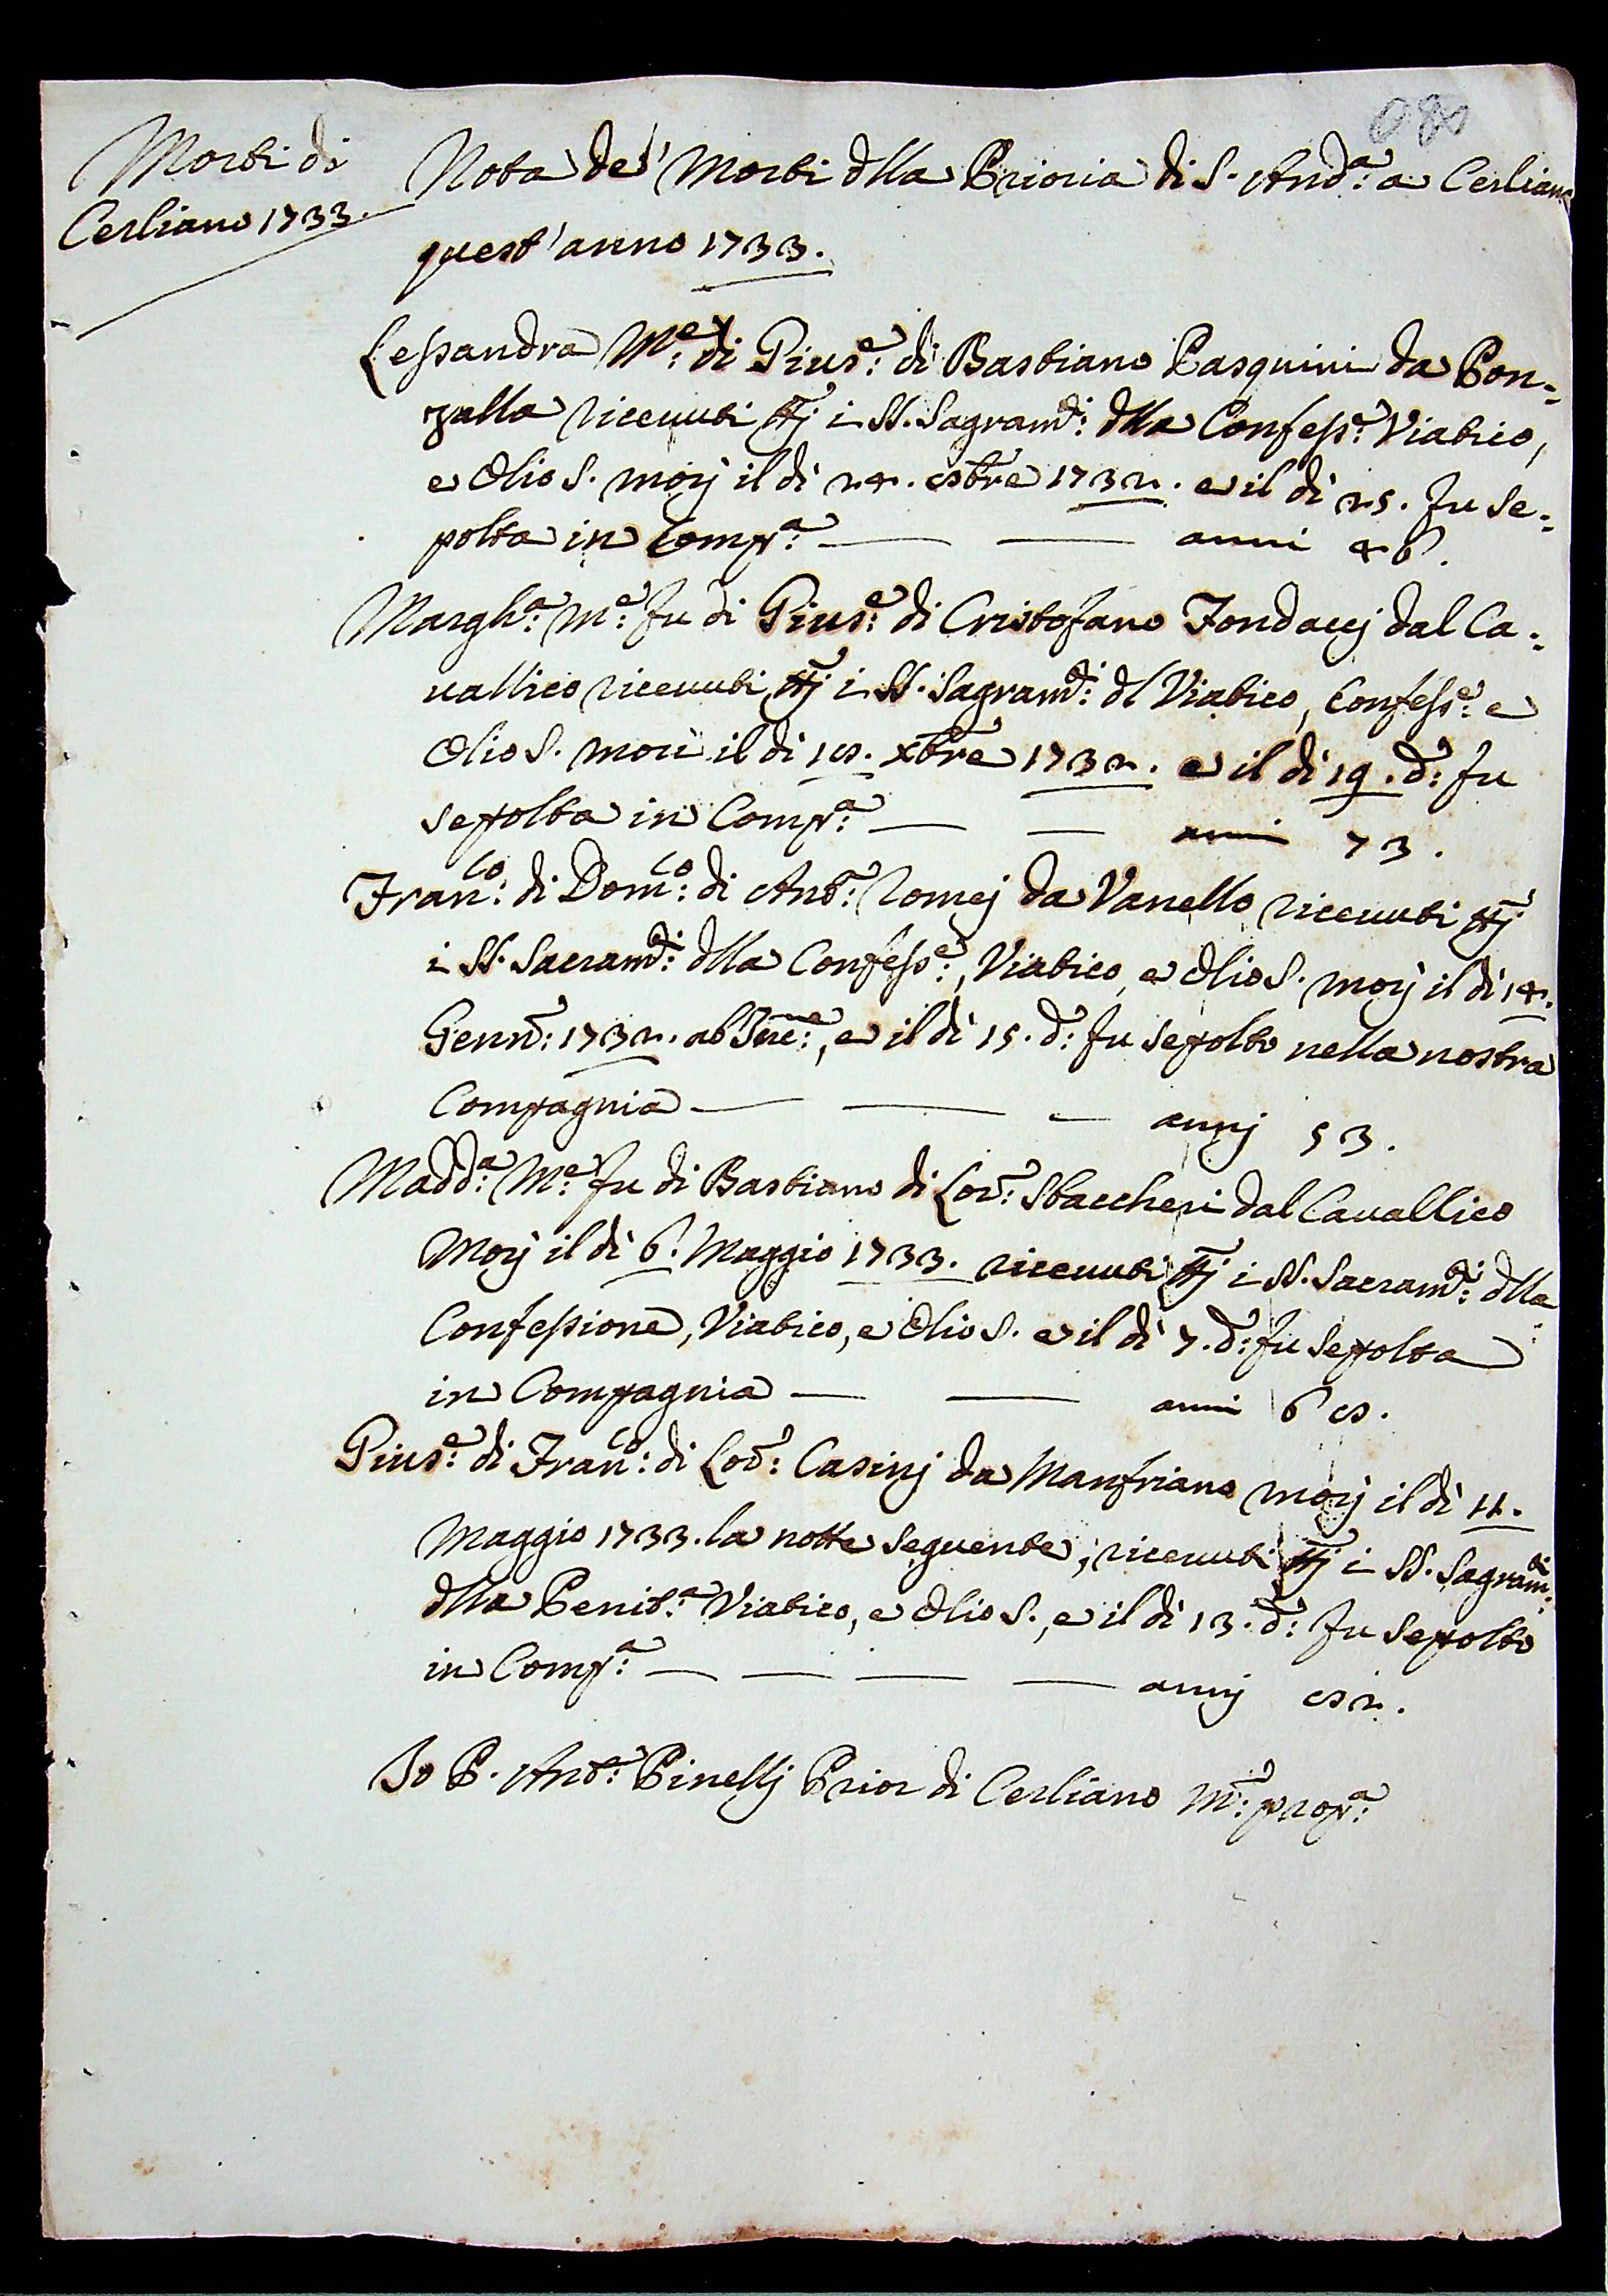 080
Morti di
Cerliano 1733.
Nota de' Morti dlla Prioria di S. And.ª a Cerliano
quest'anno 1733.
Lessandra M.e di Gius.e di Bastiano Pasquini da Pon=
zalla riceuuti ttj i SS. Sagram.ti dlla Confess.e Viatico,
e Olio S. morj il dì 24. 8bre 1732. e il dì 25. fu se=
polta in Comp.ª — — anni 46.
Margh.ª M.e fu di Gius.e di Cristofano Fondacej dal Ca=
uallico riceuuti ttj i SS. Sagram.ti dl Viatico, Confess.e e
Olio S. morì il di 18. Xbre 1732. e il dì 19. d.o fu
sepolta in Comp.ª — — anni 73.
Fran.co di Dom.co di Ant.o Romej da Vanello riceuuti ttj
i SS. Sacram.ti dlla Confess.e, Viatico, e Olio S. morj il dì 14.
Genn.o 1732. ab Inc.ne, e il dì 15. d.o fu sepolto nella nostra
Compagnia — — — annj 53.
Madd.ª M.e fu di Bastiano di Lor.o Staccheri dal Cauallico
Morj il dì 6. Maggio 1733. riceuuti ttj i SS. Sacram.ti dlla
Confessione, Viatico, e Olio S. e il dì 7. d.o fu sepolta
in Compagnia — — anni 68.
Gius.e di Fran.co di Lor.o Casinj da Manfriano morj il dì 11.
Maggio 1733. la notte seguente, riceuuti ttj i SS. Sagram.ti
dlla Penit.ª Viatico, e Olio S., e il dì 13. d.o fu sepolto
in Comp.ª — — — — annj 82.
Io P. Ant.o Pinellj Prior di Cerliano M.o prop.ª